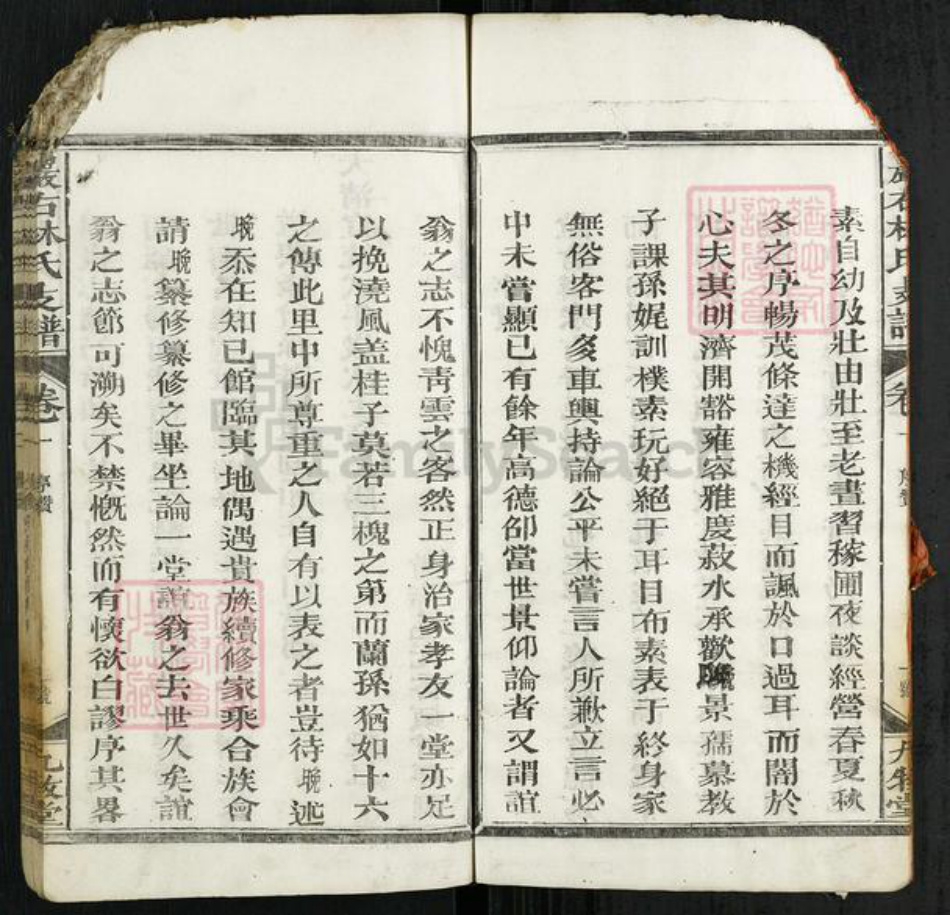 素自幼及壯由壯至老晝習稼圃夜談經營春夏秋
冬之序暢茂條達之機經目而諷於口過耳而闇於
心夫其明濟開豁雍容雅度菽水承歡 景孺慕教
子課孫娓訓樸素玩好絕于耳目布素表于終身家
無俗客門多車輿持論公平未嘗言人所歉立言必
中未嘗顯已有餘年高德卲當世景仰論者又謂誼
翁之志不愧靑雲之客然正身治家孝友一堂亦足
以挽澆風盖桂子莫若三槐之第而蘭孫猶如十六
之傳此里中所尊重之人自有以表之者豈待晚述
晚忝在知己館臨其地偶遇貴族續修家乘合族會
請晚纂修纂修之畢坐論一堂誼翁之去世久矣誼
翁之志節可溯矣不禁慨然而有懷欲白謬序其畧
巖石林氏支譜
卷一
序贊
九牧堂
FamilySearch